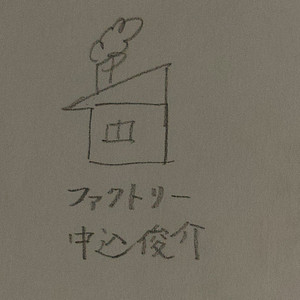 ファクトリー
中込俊介